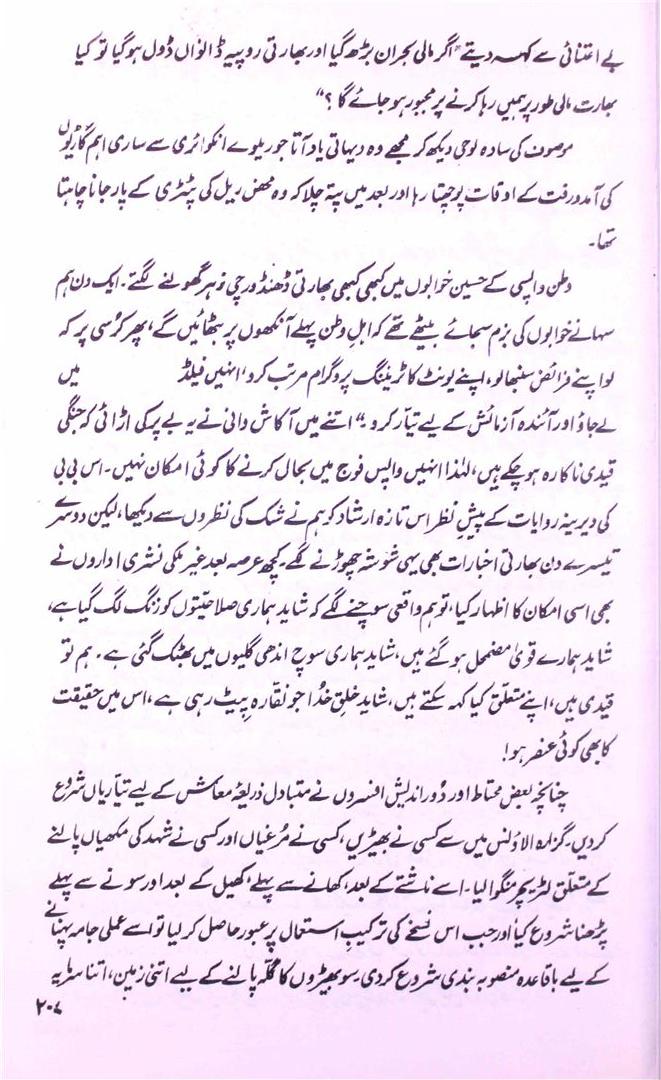 بے اعتنائی سے کہہ دیتے "اگر مالی بحران بڑھ گیا اور بھارتی روپیہ ڈانواں ڈول ہوگیا تو کیا
بھارت مالی طور پر ہمیں رہا کرنے پر مجبور ہو جائے گا ؟"
موصوف کی سادہ لوحی دیکھ کر مجھے وہ دیہاتی یاد آتا جو ریلوے انکوائری سے ساری اہم گاڑیوں
کی آمد و رفت کے اوقات پوچھتا رہا اور بعد میں پتہ چلا کہ وہ محض ریل کی پٹڑی کے پار جانا چاہتا
تھا۔
وطن واپسی کے حسین خوابوں میں کبھی کبھی بھارتی ڈھنڈورچی زہر گھولنے لگتے۔ ایک دن ہم
سہانے خوابوں کی بزم سجائے بیٹھے تھے کہ اہلِ وطن پہلے آنکھوں پر بٹھائیں گے، پھر کرسی پر کہ
لو اپنے فرائض سنبھالو، اپنے یونٹ کا ٹریننگ پروگرام مرتب کرو، انہیں فیلڈ میں
لے جاؤ اور آئندہ آزمائش کے لیے تیار کرو۔" اتنے میں آکاش وانی نے یہ بے پر کی اڑائی کہ جنگی
قیدی ناکارہ ہو چکے ہیں، لہٰذا انہیں واپس فوج میں بحال کرنے کا کوئی امکان نہیں۔ اس بی بی
کی دیرینہ روایات کے پیشِ نظر اس تازہ ارشاد کو ہم نے شک کی نظروں سے دیکھا، لیکن دوسرے
تیسرے دن بھارتی اخبارات بھی یہی شوشہ چھوڑنے لگے۔ کچھ عرصہ بعد غیر ملکی نشری اداروں نے
بھی اسی امکان کا اظہار کیا، تو ہم واقعی سوچنے لگے کہ شاید ہماری صلاحیتوں کو زنگ لگ گیا ہے،
شاید ہمارے قویٰ مضمحل ہو گئے ہیں، شاید ہماری سوچ اندھی گلیوں میں بھٹک گئی ہے۔ ہم تو
قیدی ہیں، اپنے متعلق کیا کہہ سکتے ہیں، شاید خلقِ خدا جو نقارہ پیٹ رہی ہے، اس میں حقیقت
کا بھی کوئی عنصر ہو!
چنانچہ بعض محتاط اور دُور اندیش افسروں نے متبادل ذریعۂ معاش کے لیے تیاریاں شروع
کر دیں۔ گزارہ الاؤنس میں سے کسی نے بھیڑیں، کسی نے مُرغیاں اور کسی نے شہد کی مکھیاں پالنے
کے متعلق لٹریچر منگوا لیا۔ اسے ناشتے کے بعد، کھانے سے پہلے، کھیل کے بعد اور سونے سے پہلے
پڑھنا شروع کیا اور جب اس نسخے کی ترکیبِ استعمال پر عبور حاصل کر لیا تو اسے عملی جامہ پہنانے
کے لیے باقاعدہ منصوبہ بندی شروع کر دی۔ سو بھیڑوں کا گلّہ پالنے کے لیے اتنی زمین، اتنا سرمایہ
۲۰۷